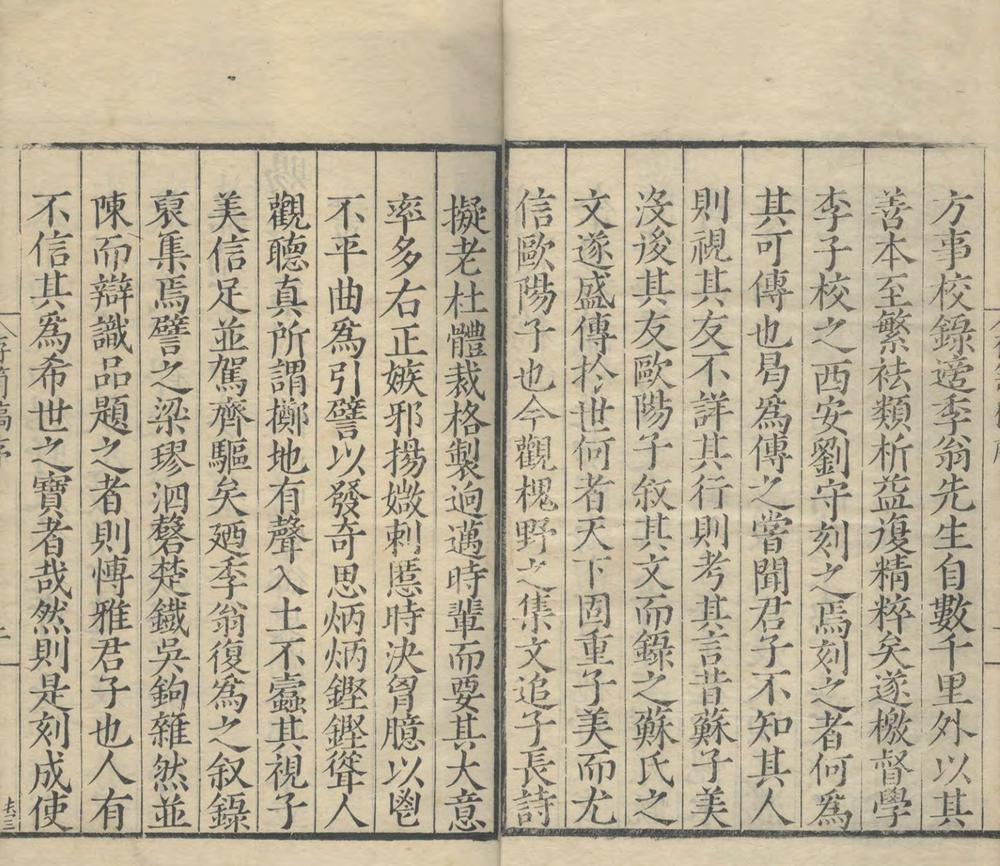 方事校錄遼季翁先生自數千里外以其
善本至繁袪類析益復精粹矣遂檄督學
李子校之西安劉守刻之焉刻之者何爲
其可傳也曷爲傳之嘗聞君子不知其人
則視其友不詳其行則考其言昔蘇子美
沒後其友歐陽子敘其文而錄之蘇氏之
文遂盛傳扵世何者天下固重子美而尤
信歐陽子也今觀槐野之集文追子長詩
擬老杜體裁格製逈邁時輩而要其大意
率多右正嫉邪揚媺刺慝時決胷臆以鬯
不平曲爲引譬以發奇思炳炳鏗鏗聳人
觀聽真所謂擲地有聲入土不蠧其視子
美信足並駕齊驅矣廼季翁復爲之叙錄
裒集焉譬之梁璆泗磬楚鐵吳鉤雜然並
陳而辯識品題之者則博雅君子也人有
不信其爲希世之寶者哉然則是刻成使
存笥稿序